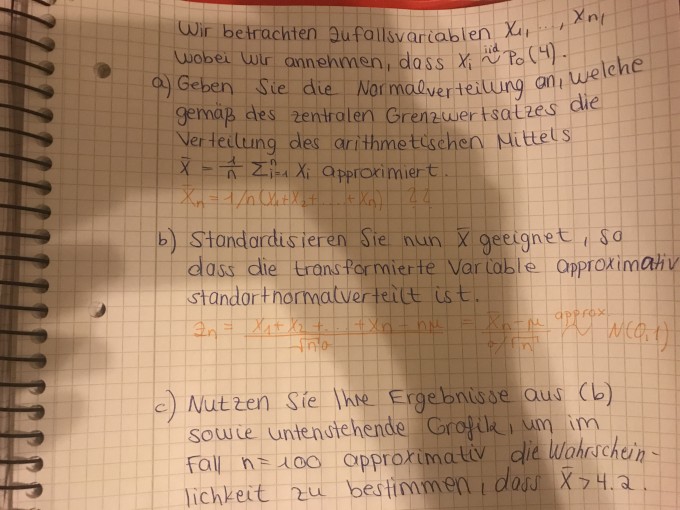 Wir betrachten Zufallsvariablen X₁, ..., Xn,
wobei wir annehmen, dass Xi iid ~ Po(4).
a) Geben Sie die Normalverteilung an, welche
gemäß des zentralen Grenzwertsatzes die
Verteilung des arithmetischen Mittels
X̄ = 1/n Σⁿᵢ₌₁ Xi approximiert.
X̄n = 1/n (X₁+X₂+ ... +Xn) ??
b) Standardisieren Sie nun X̄ geeignet, so
dass die transformierte Variable approximativ
standartnormalverteilt ist.
Zn = (X₁ + X₂ + ... + Xn - nμ)/(√n σ) = (X̄n - μ)/(σ/√n) approx ~ N(0,1)
c) Nutzen Sie Ihre Ergebnisse aus (b)
sowie untenstehende Grafik, um im
Fall n=100 approximativ die Wahrschein-
lichkeit zu bestimmen, dass X̄ > 4.2.